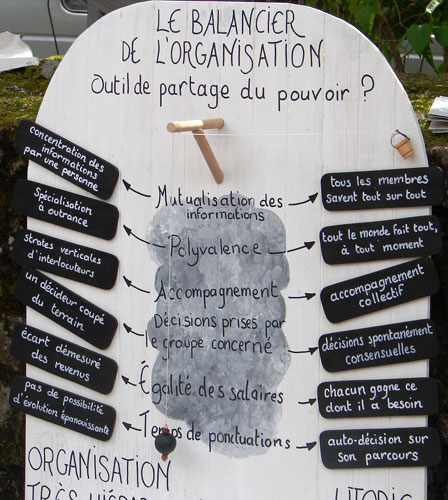 LE BALANCIER
DE L'ORGANISATION
Outil de partage du pouvoir ?
concentration des
informations
par une personne
Mutualisation des
informations
tous les membres
savent tout sur tout
Spécialisation
à outrance
Polyvalence
tout le monde fait tout,
à tout moment
strates verticales
d'interlocuteurs
Accompagnement
accompagnement
collectif
un décideur coupé
du terrain
Décisions prises par
le groupe concerné
décisions spontanément
consensuelles
écart démesuré
des revenus
Égalité des salaires
chacun gagne ce
dont il a besoin
pas de possibilité
d'évolution épanouissante
Temps de ponctuations
auto-décision sur
son parcours
ORGANISATION
TRÈS